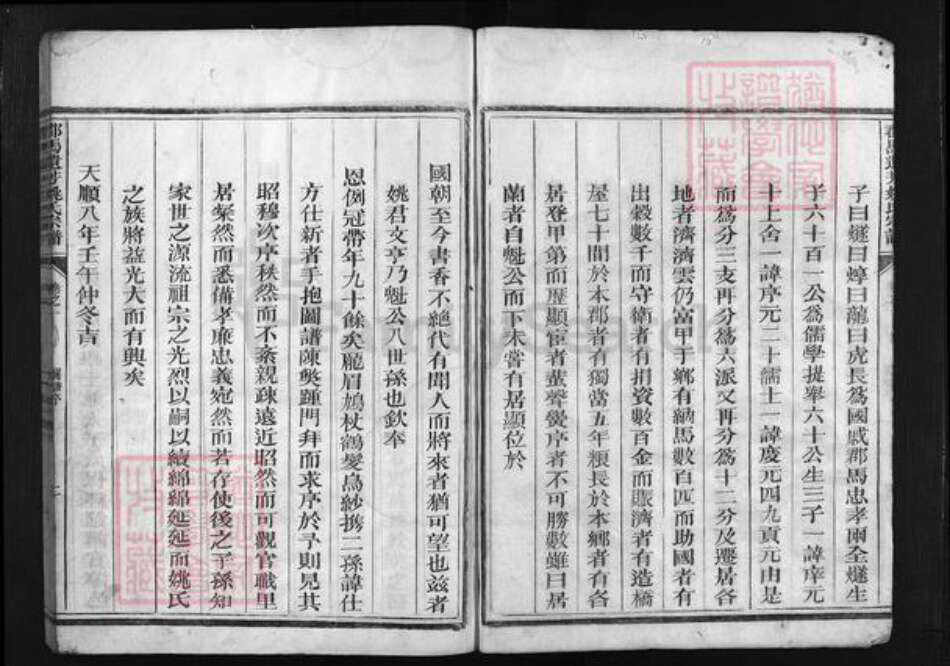 子曰燧曰焞曰龍曰虎長爲國戚郡馬忠孝兩全燧生
子六十百一公爲儒學提舉六十公生三子一諱庠元
十上舍一諱序元二十儒士一諱度元四九貢元由是
而爲分三支再分爲六派又再分爲十二分及遷居各
地者濟濟雲仍富甲于鄉有納馬數百匹而助國者有
出穀數千而守衛者有捐資數百金而賑濟者有造橋
屋七十間於本郡者有獨當五年粮長於本鄉者有各
居登甲第而歷顯宦者蜚聲黌序者不可勝數雖曰居
蘭者自魁公而下未嘗有居顯位於
國朝至今書香不絕代有聞人而將來者猶可望也兹者
姚君文亨乃魁公八世孫也欽奉
恩例冠帶年九十餘矣龎眉鳩杖鶴髮烏紗携二孫諱仕
方仕新者手抱圖譜陳獎踵門拜而求序於予則見其
昭穆次序秩然而不紊親疎遠近昭然而可觀官職里
居粲然而悉備孝廉忠義宛然而若存使後之子孫知
家世之源流祖宗之光烈以嗣以續綿綿延延而姚氏
之族將益光大而有興矣
天順八年壬午仲冬吉